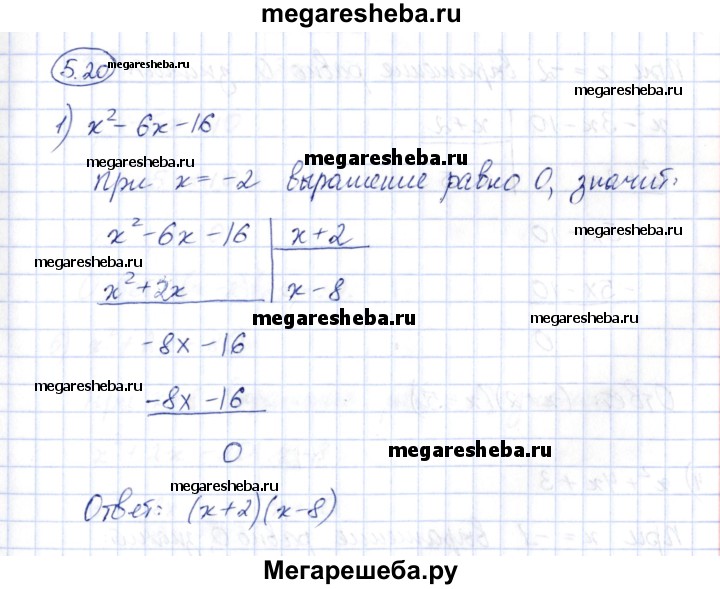 megaresheba.ru
5.20 megaresheba.ru
1) x² - 6x - 16 megaresheba.ru
megaresheba.ru megaresheba.ru
при x = -2 выражение равно 0, значит:
megaresheba.ru
x² - 6x - 16 | x + 2
megaresheba.ru megaresheba.ru
x² + 2x | x - 8
megaresheba.ru megaresheba.ru
-8x - 16
megaresheba.ru megaresheba.ru
-8x - 16
megaresheba.ru
0
megaresheba.ru
Ответ: (x+2)(x-8)
megaresheba.ru
Мегарешеба.ру